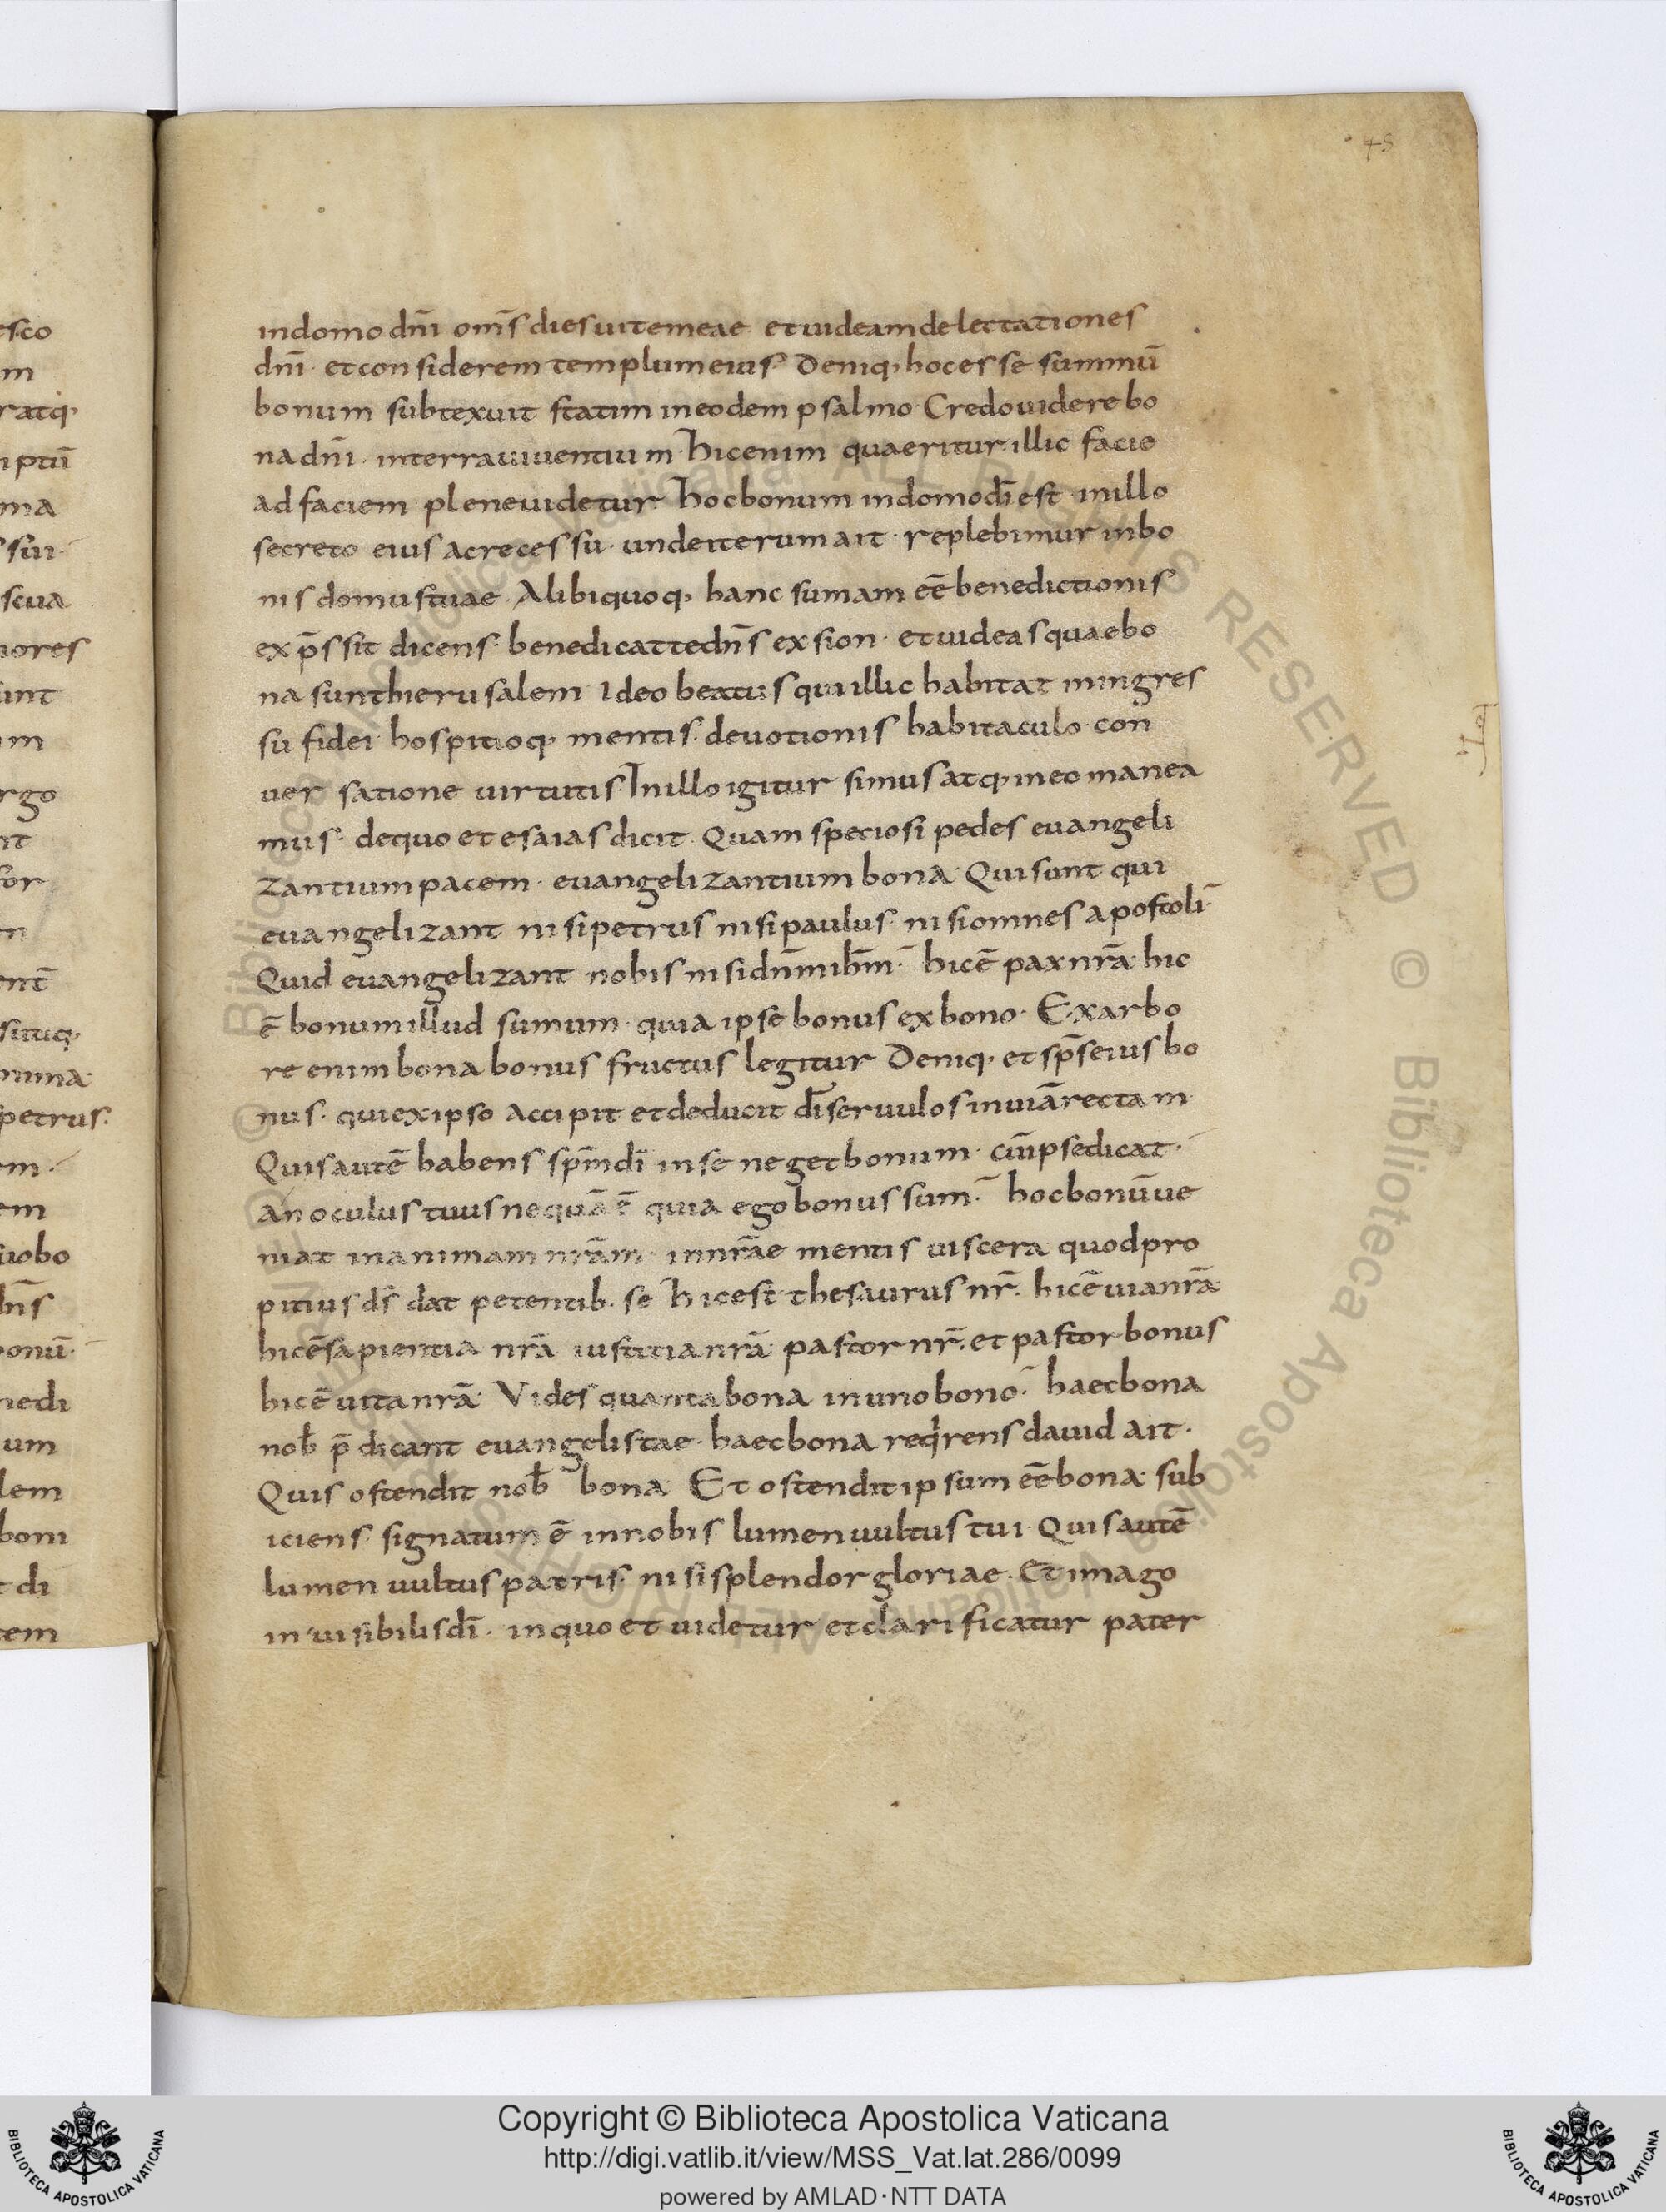 45
in domo dn̄i om̄s dies uitemeae et uideam delectationes
dn̄i · et considerem templum eius· Deniq; hoc esse summū
bonum subtexuit statim in eodem psalmo· Credo uidere bo
na dn̄i · in terra uiuentium· hic enim quaeritur illic facie
ad faciem plene uidetur· hoc bonum in domo dī est in illo
secreto eius ac recessu · unde iterum ait · replebimur in bo
nis domus tuae· Alibi quoq; hanc sumam eē benedictionis
exp̄ssit dicens· benedicat te dn̄s ex sion · et uideas quae bo
na sunt hierusalem Ideo beatus qui illic habitat in ingres
su fidei hospitioq; mentis· deuotionis habitaculo· con
uersatione uirtutis· In illo igitur simus atq; in eo manea
mus · de quo et esaias dicit· Quam speciosi pedes euangeli
zantium pacem · euangelizantium bona· Qui sunt qui
euangelizant nisi petrus nisi paulus· nisi omnes apostoli·
Quid euangelizant nobis nisi dn̄m ih̄m· hic ē pax nr̄a· hic
ē bonum illud sumum· quia ipse bonus ex bono· Ex arbo
re enim bona bonus fructus legitur Deniq; et sp̄s eius bo
nus· qui ex ipso accipit et deducit dī seruulos in uiā rectam
Quis autē habens sp̄m dī in se neget bonum· cū ipse dicat·
an oculus tuus nequā ē quia ego bonus sum· hoc bonū ue
niat in animam nr̄am· in nr̄ae mentis uiscera quod pro
pitius ds̄ dat petentib· se hic est thesaurus nr̄· hic ē uia nr̄a·
hic ē sapientia nr̄a iustitia nr̄a· pastor nr̄· et pastor bonus
hic ē uita nr̄a· Vides quanta bona in uno bono· haec bona
nob̄ p̄dicant euangelistae· haec bona reqrens dauid ait·
Quis ostendit nob̄ bona Et ostendit ipsum eē bona· sub
iciens· signatum ē in nobis lumen uultus tui· Quis autē
lumen uultus patris· nisi splendor gloriae· Et imago
inuisibilis dī · in quo et uidetur et clarificatur pater
© Biblioteca Apostolica Vaticana ALL RIGHTS RESERVED
Copyright © Biblioteca Apostolica Vaticana
http://digi.vatlib.it/view/MSS_Vat.lat.286/0099
powered by AMLAD·NTT DATA
BIBLIOTECA APOSTOLICA VATICANA
BIBLIOTECA APOSTOLICA VATICANA